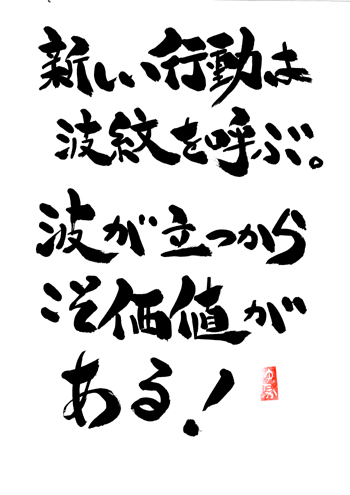 新しい行動は
波紋を呼ぶ。
波が立つから
こそ価値が
ある!